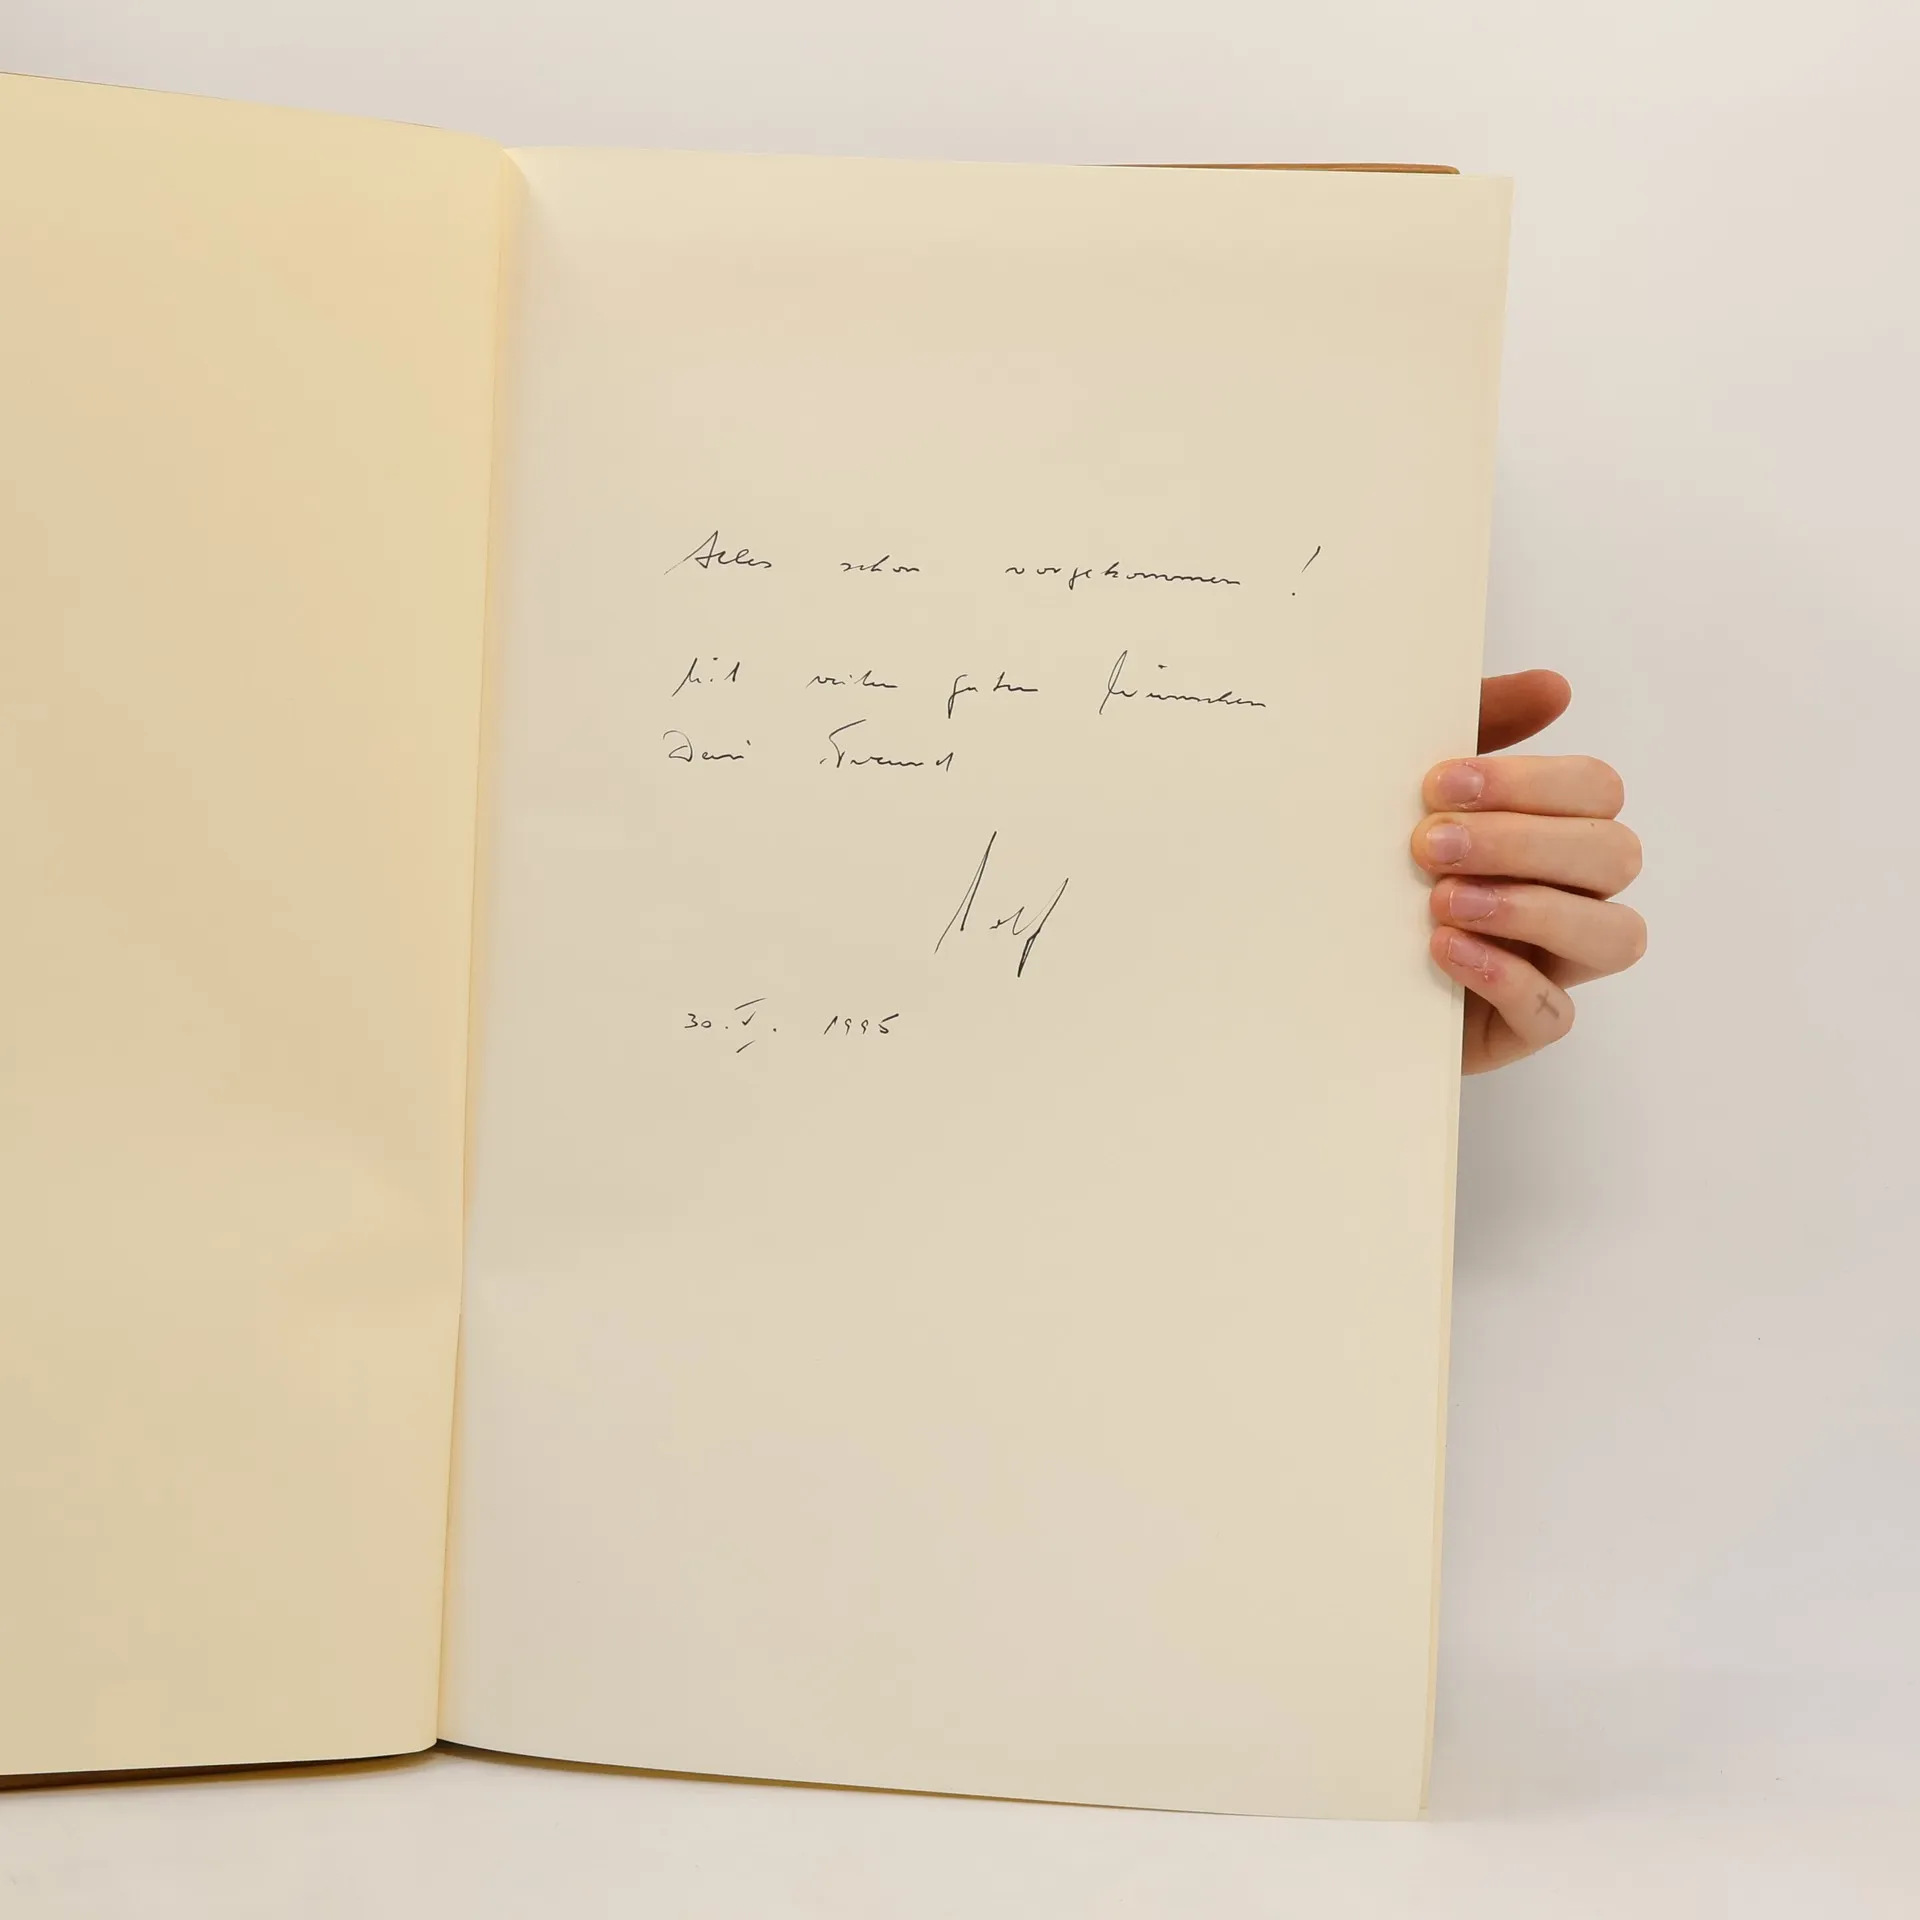 Alles schon vorgekommen!
Mit vielen guten Wünschen
Dein Freund
30. V. 1995